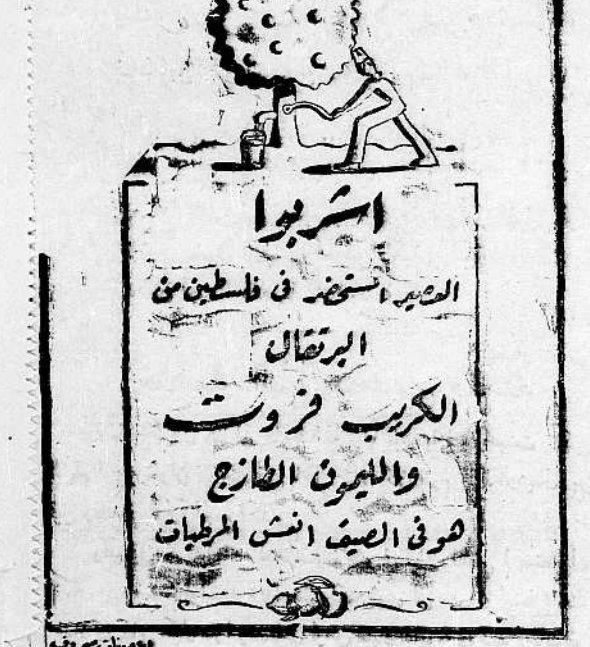 اشربوا
العصير المستحضر في فلسطين من
البرتقال
الكريب فروت
والليمون الطازج
هو في الصيف انعش المرطبات